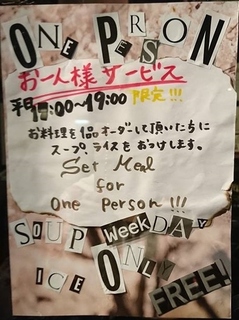 ONE PERSON
お一人様サービス
平日17:00〜19:00 限定!!!
お料理を1品オーダーして頂いた方に
スープ、ライスをおつけします。
Set Meal
for
One Person!!!
SOUP WeekDAY
ICE ONLY
FREE!